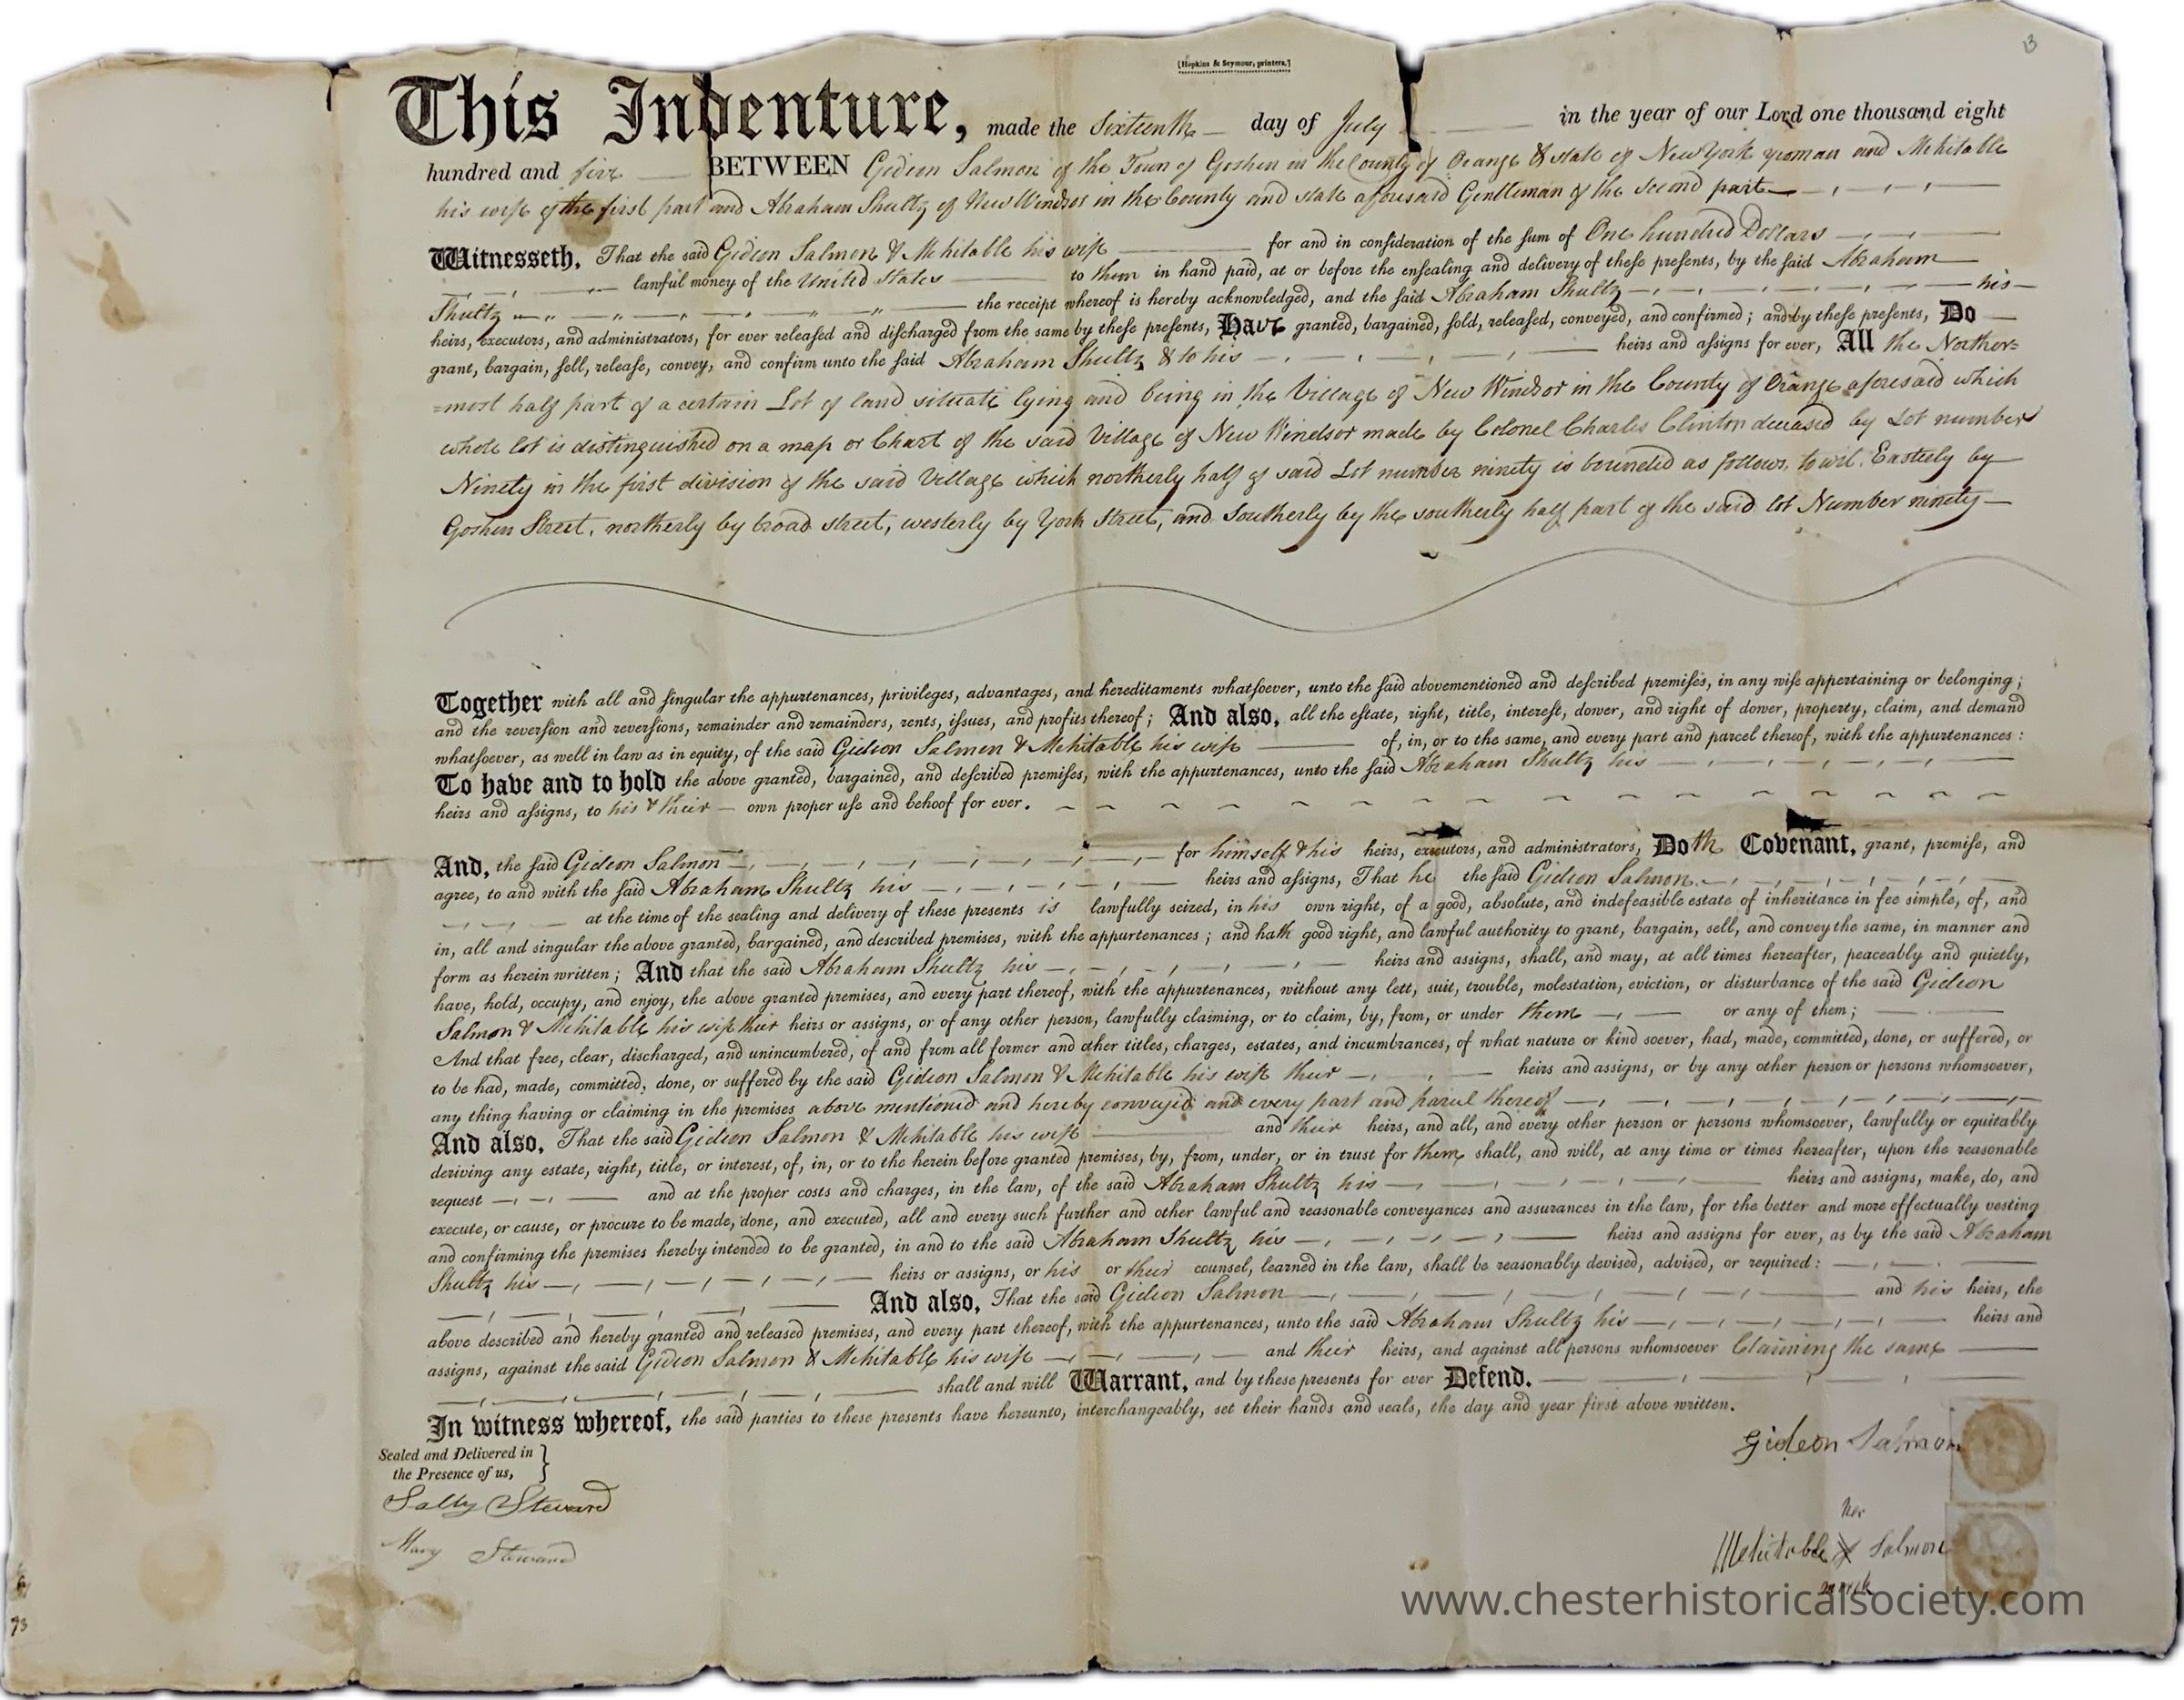 [Hopkins & Seymour, printers.]
13
This Indenture, made the Sixteenth day of July in the year of our Lord one thousand eight
hundred and five BETWEEN Gideon Salmon of the Town of Goshen in the County of Orange & state of New York yeoman and Mehitable
his wife of the first part and Abraham Shultz of New Windsor in the County and state aforesaid Gentleman of the second part
Witnesseth, That the said Gideon Salmon & Mehitable his wife for and in consideration of the sum of One hundred Dollars
lawful money of the United States to them in hand paid, at or before the ensealing and delivery of these presents, by the said Abraham
Shultz the receipt whereof is hereby acknowledged, and the said Abraham Shultz his
heirs, executors, and administrators, for ever released and discharged from the same by these presents, Have granted, bargained, sold, released, conveyed, and confirmed; and by these presents, Do
grant, bargain, sell, release, convey, and confirm unto the said Abraham Shultz & to his heirs and assigns for ever, All the Norther=
=most half part of a certain Lot of land situate lying and being in the Village of New Windsor in the County of Orange aforesaid which
whole lot is distinguished on a map or Chart of the said Village of New Windsor made by Colonel Charles Clinton deceased by Lot number
Ninety in the first division of the said Village which northerly half of said Lot number ninety is bounded as follows, to wit. Easterly by
Goshen Street, northerly by broad street, westerly by York Street, and Southerly by the southerly half part of the said lot Number ninety
Together with all and singular the appurtenances, privileges, advantages, and hereditaments whatsoever, unto the said abovementioned and described premises, in any wise appertaining or belonging;
and the reversion and reversions, remainder and remainders, rents, issues, and profits thereof; And also, all the estate, right, title, interest, dower, and right of dower, property, claim, and demand
whatsoever, as well in law as in equity, of the said Gideon Salmon & Mehitable his wife of, in, or to the same, and every part and parcel thereof, with the appurtenances:
To have and to hold the above granted, bargained, and described premises, with the appurtenances, unto the said Abraham Shultz his
heirs and assigns, to his & their own proper use and behoof for ever.
And, the said Gideon Salmon for himself & his heirs, executors, and administrators, Doth Covenant, grant, promise, and
agree, to and with the said Abraham Shultz his heirs and assigns, That he the said Gideon Salmon
at the time of the sealing and delivery of these presents is lawfully seized, in his own right, of a good, absolute, and indefeasible estate of inheritance in fee simple, of, and
in, all and singular the above granted, bargained, and described premises, with the appurtenances; and hath good right, and lawful authority to grant, bargain, sell, and convey the same, in manner and
form as herein written; And that the said Abraham Shultz his heirs and assigns, shall, and may, at all times hereafter, peaceably and quietly,
have, hold, occupy, and enjoy, the above granted premises, and every part thereof, with the appurtenances, without any lett, suit, trouble, molestation, eviction, or disturbance of the said Gideon
Salmon & Mehitable his wife their heirs or assigns, or of any other person, lawfully claiming, or to claim, by, from, or under them or any of them;
And that free, clear, discharged, and unincumbered, of and from all former and other titles, charges, estates, and incumbrances, of what nature or kind soever, had, made, committed, done, or suffered, or
to be had, made, committed, done, or suffered by the said Gideon Salmon & Mehitable his wife their heirs and assigns, or by any other person or persons whomsoever,
any thing having or claiming in the premises above mentioned and hereby conveyed and every part and parcel thereof
And also, That the said Gideon Salmon & Mehitable his wife and their heirs, and all, and every other person or persons whomsoever, lawfully or equitably
deriving any estate, right, title, or interest, of, in, or to the herein before granted premises, by, from, under, or in trust for them shall, and will, at any time or times hereafter, upon the reasonable
request and at the proper costs and charges, in the law, of the said Abraham Shultz his heirs and assigns, make, do, and
execute, or cause, or procure to be made, done, and executed, all and every such further and other lawful and reasonable conveyances and assurances in the law, for the better and more effectually vesting
and confirming the premises hereby intended to be granted, in and to the said Abraham Shultz his heirs and assigns for ever, as by the said Abraham
Shultz his heirs or assigns, or his or their counsel, learned in the law, shall be reasonably devised, advised, or required:
And also, That the said Gideon Salmon and his heirs, the
above described and hereby granted and released premises, and every part thereof, with the appurtenances, unto the said Abraham Shultz his heirs and
assigns, against the said Gideon Salmon & Mehitable his wife and their heirs, and against all persons whomsoever Claiming the same
shall and will Warrant, and by these presents for ever Defend.
In witness whereof, the said parties to these presents have hereunto, interchangeably, set their hands and seals, the day and year first above written.
Sealed and Delivered in
the Presence of us,
Sally Steward
Mary Steward
Gideon Salmon
her
Mehitable X Salmon
mark
73
www.chesterhistoricalsociety.com